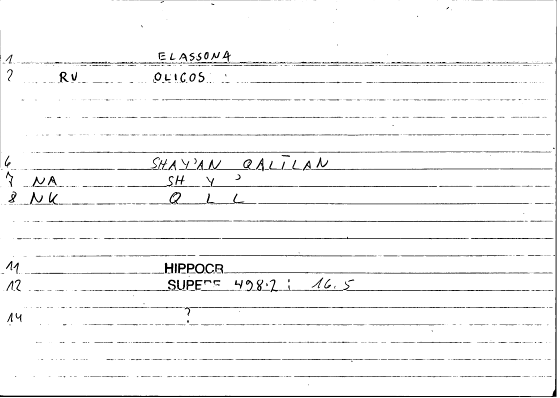 1 ELASSONA
2 RV OLIGOS
6 SHAY'AN QALĪLAN
7 NA SH Y '
8 NK Q L L
11 HIPPOCR
12 SUPERF 498.2 ; 16.5
14 ?